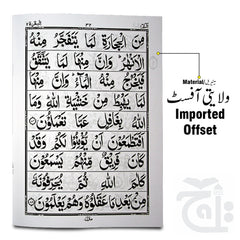 البقرة ٢
٣٢
الٓمّٓ ١
مِنَ الْحِجَارَةِ لَمَا يَتَفَجَّرُ مِنْهُ
الْاَنْهٰرُ وَاِنَّ مِنْهَا لَمَا يَشَّقَّقُ
فَيَخْرُجُ مِنْهُ الْمَآءُ وَاِنَّ مِنْهَا
لَمَا يَهْبِطُ مِنْ خَشْيَةِ اللّٰهِ وَمَا
اللّٰهُ بِغَافِلٍ عَمَّا تَعْمَلُوْنَ
اَفَتَطْمَعُوْنَ اَنْ يُّؤْمِنُوْا لَكُمْ وَقَدْ
كَانَ فَرِيْقٌ مِّنْهُمْ يَسْمَعُوْنَ
كَلٰمَ اللّٰهِ ثُمَّ يُحَرِّفُوْنَهٗ
مِنْۢ بَعْدِ مَا عَقَلُوْهُ وَهُمْ يَعْلَمُوْنَ
Material/میٹیریل
ولایتی آفسٹ
Imported
Offset